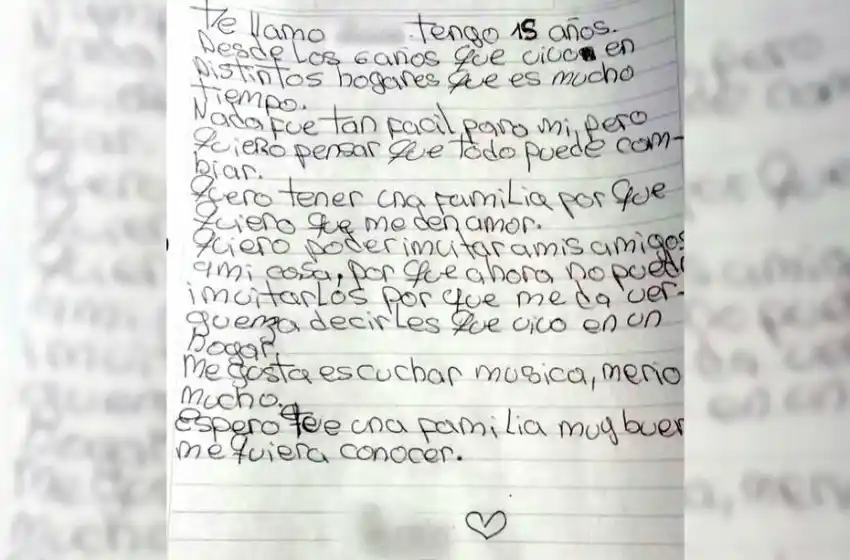 Me llamo tengo 15 años.
Desde los 6 años que vivo en
Distintos hogares que es mucho
tiempo.
Nada fue tan facil para mi, pero
quiero pensar que todo puede cam-
biar.
Quero tener una familia por que
quiero que me den amor.
Quiero poder imvitar a mis amigos
a mi casa, por que ahora no puedo
imvitarlos por que me da ver-
guenza decirles que vivo en un
hogar.
Me gusta escuchar musica, me rio
mucho.
espero que una familia muy buen
me quiera conocer.